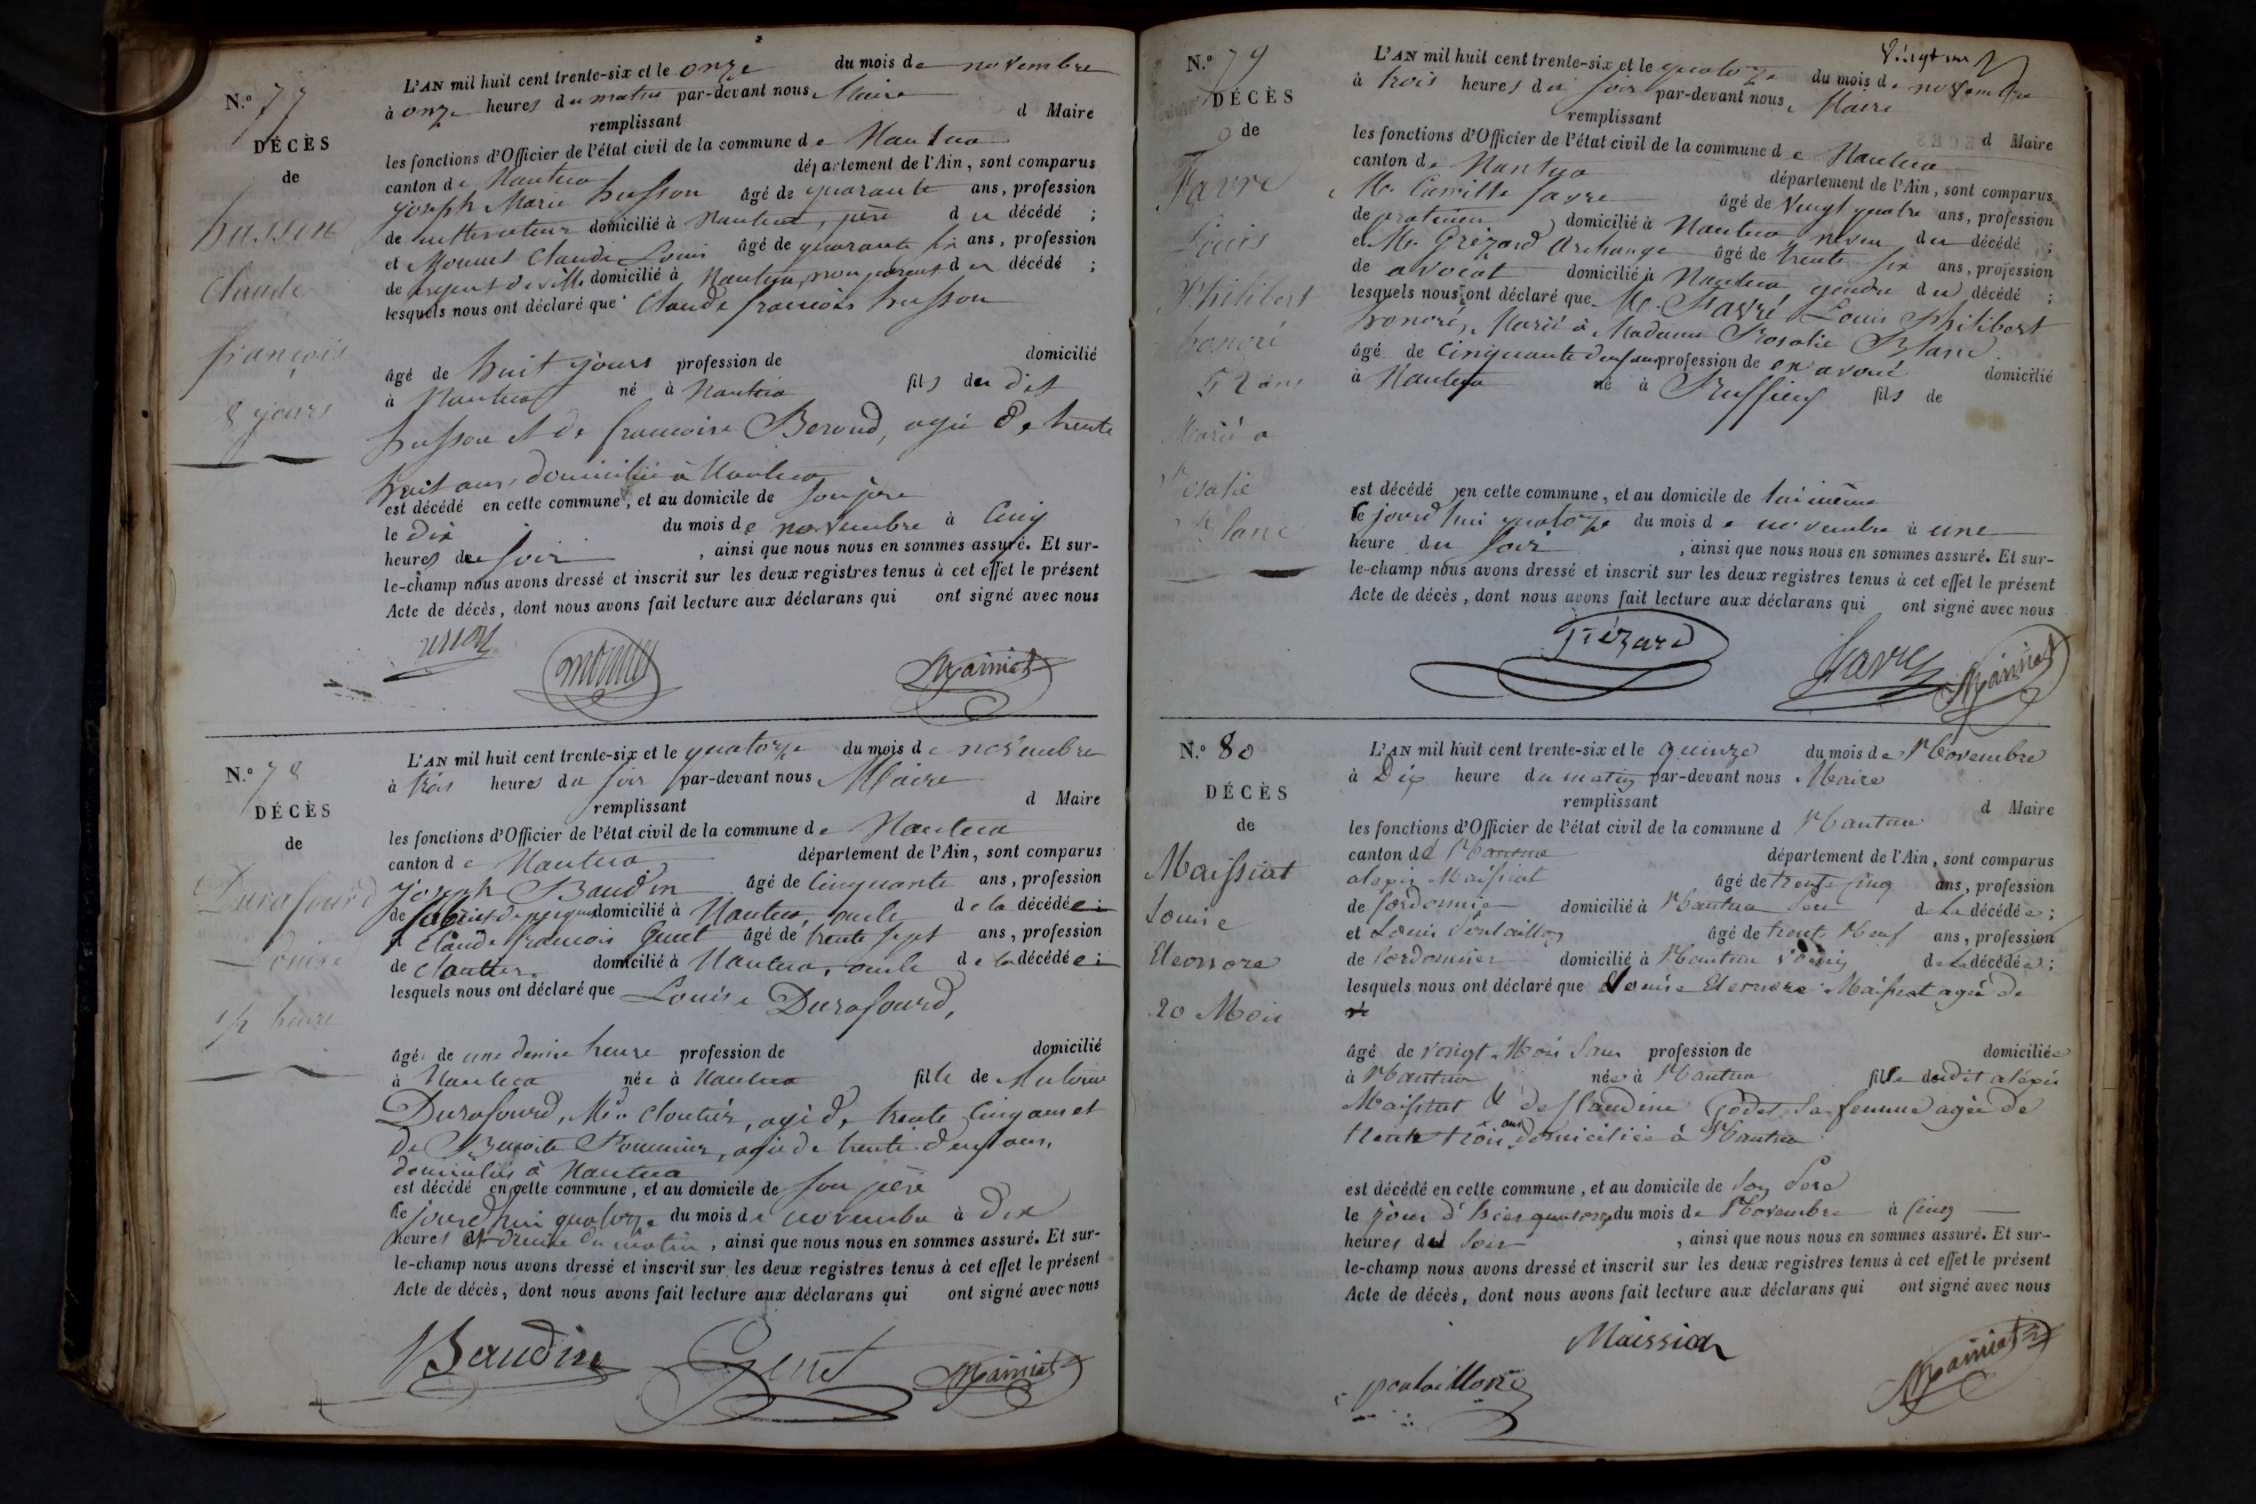 N.° 77
DÉCÈS
de
husson
Claude
françois
8 jours
L'AN mil huit cent trente-six et le onze du mois de novembre
à onze heures du matin par-devant nous Maire
remplissant d Maire
les fonctions d'Officier de l'état civil de la commune de Nantua
canton de Nantua département de l'Ain, sont comparus
joseph Marie husson âgé de quarante ans, profession
de cultivateur domicilié à Nantua, père du décédé ;
et Mounet Claude Louis âgé de quarante six ans, profession
de sergent de ville domicilié à Nantua, non parent du décédé ;
lesquels nous ont déclaré que Claude françois husson
âgé de huit jours profession de domicilié
à Nantua né à Nantua fils du dit
husson et de francoise Beroud, agée de trente
huit ans, domiciliée à Nantua
est décédé en cette commune, et au domicile de son père
le dix du mois de novembre à cinq
heures du soir , ainsi que nous nous en sommes assuré. Et sur-
le-champ nous avons dressé et inscrit sur les deux registres tenus à cet effet le présent
Acte de décès, dont nous avons fait lecture aux déclarans qui ont signé avec nous
N.° 78
DÉCÈS
de
Durafourd
Louise
1/2 heure
L'AN mil huit cent trente-six et le quatorze du mois de novembre
à trois heures du soir par-devant nous Maire
remplissant d Maire
les fonctions d'Officier de l'état civil de la commune de Nantua
canton de Nantua département de l'Ain, sont comparus
joseph Baudin âgé de cinquante ans, profession
de fabricant de peignes domicilié à Nantua, oncle de la décédée ;
et Claude francois Genet âgé de trente sept ans, profession
de cloutier domicilié à Nantua, oncle de la décédée ;
lesquels nous ont déclaré que Louise Durafourd,
âgé de une demie heure profession de domicilié
à Nantua née à Nantua fille de Antoine
Durafourd, Md. cloutier, agé de trente cinq ans et
de Benoite agée de trente deux ans,
domiciliés à Nantua
est décédé en cette commune, et au domicile de son père
le jourd'hui quatorze du mois de novembre à dix
heures et demie du matin, ainsi que nous nous en sommes assuré. Et sur-
le-champ nous avons dressé et inscrit sur les deux registres tenus à cet effet le présent
Acte de décès, dont nous avons fait lecture aux déclarans qui ont signé avec nous
Baudin Genet Maissiat
N.° 79
DÉCÈS
de
Favre
Louis
Philibert
honoré
52 ans
Marié a
Rosalie
Blanc
L'AN mil huit cent trente-six et le quatorze du mois de novembre
à trois heures du soir par-devant nous Maire
remplissant d Maire
les fonctions d'Officier de l'état civil de la commune de Nantua
canton de Nantua département de l'Ain, sont comparus
Mr. Camille favre âgé de vingt quatre ans, profession
de praticien domicilié à Nantua neveu du décédé ;
et Mr. Grézard Archange âgé de trente six ans, profession
de avocat domicilié à Nantua gendre du décédé ;
lesquels nous ont déclaré que Mr. Favre Louis Philibert
honoré, Marié à Madame Rosalie Blanc
âgé de cinquante deux ans profession de ex avoué domicilié
à Nantua né à Ruffieu fils de
est décédé en cette commune, et au domicile de lui même
le jourd'hui quatorze du mois de novembre à une
heure du soir , ainsi que nous nous en sommes assuré. Et sur-
le-champ nous avons dressé et inscrit sur les deux registres tenus à cet effet le présent
Acte de décès, dont nous avons fait lecture aux déclarans qui ont signé avec nous
Grézard Favre Maissiat
N.° 80
DÉCÈS
de
Maissiat
Louise
Eleonore
20 Mois
L'AN mil huit cent trente-six et le quinze du mois de Novembre
à Dix heure du matin par-devant nous Maire
remplissant d Maire
les fonctions d'Officier de l'état civil de la commune d Nantua
canton de Nantua département de l'Ain, sont comparus
alexis Maissiat âgé de trente cinq ans, profession
de Cordonnier domicilié à Nantua Pere de La décédée ;
et Louis Pontaillon âgé de trente Neuf ans, profession
de Cordonnier domicilié à Nantua voisin de La décédée ;
lesquels nous ont déclaré que Louise Eleonore Maissiat agée de
âgé de vingt Mois Sans profession de domiciliée
à Nantua née à Nantua fille dudit alexis
Maissiat & de Claudine Godet Sa femme agée de
trente trois ans domiciliée à Nantua
est décédé en cette commune, et au domicile de Son Pere
le jour d'hier quatorze du mois de Novembre à Cinq
heures du Soir , ainsi que nous nous en sommes assuré. Et sur-
le-champ nous avons dressé et inscrit sur les deux registres tenus à cet effet le présent
Acte de décès, dont nous avons fait lecture aux déclarans qui ont signé avec nous
Maissiat
pontaillon Maissiat